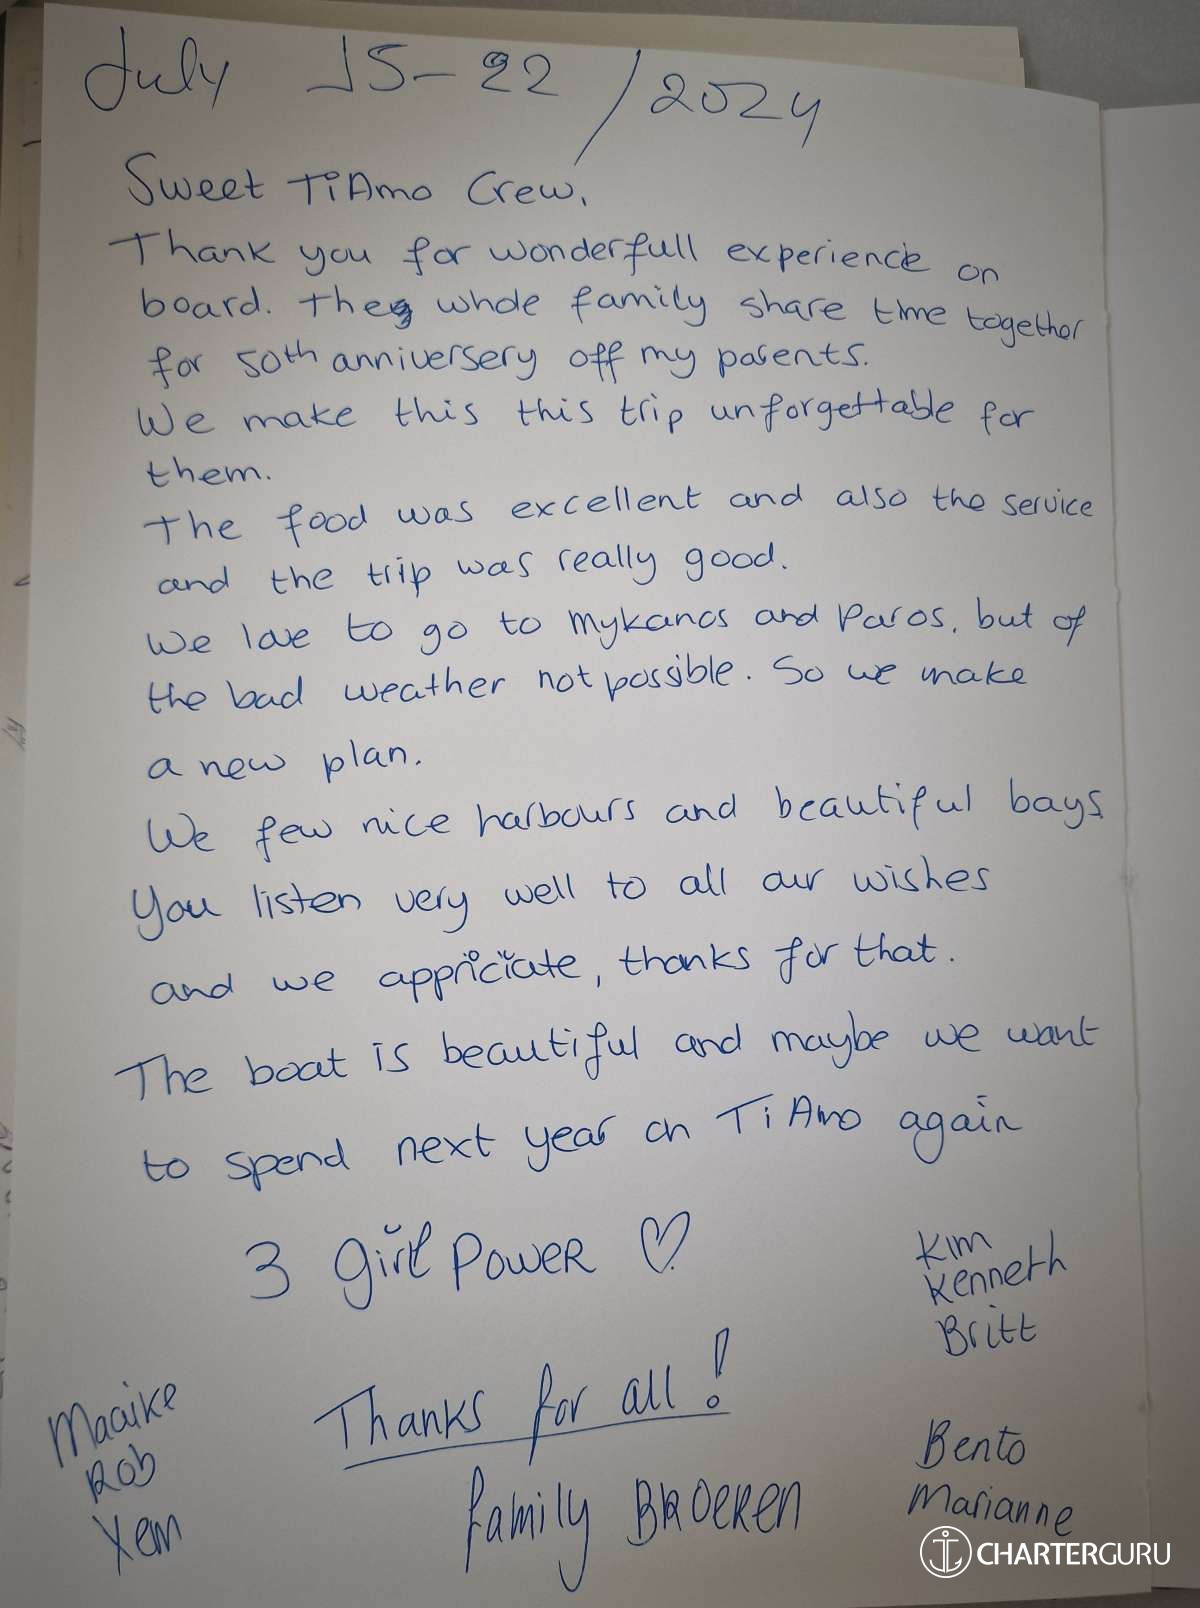 July 15-22 / 2024
Sweet TiAmo Crew,
Thank you for wonderfull experience on
board. The whole family share time together
for 50th anniversery off my parents.
We make this this trip unforgettable for
them.
The food was excellent and also the service
and the trip was really good.
We love to go to Mykanos and Paros, but of
the bad weather not possible. So we make
a new plan.
We few nice harbours and beautiful bays.
You listen very well to all our wishes
and we appriciate, thanks for that.
The boat is beautiful and maybe we want
to spend next year on TiAmo again
3 Girl Power ♡
Kim
Kenneth
Britt
Thanks for all!
Maaike
Rob
Yem
Family BROEREN
Bento
Marianne
CHARTERGURU